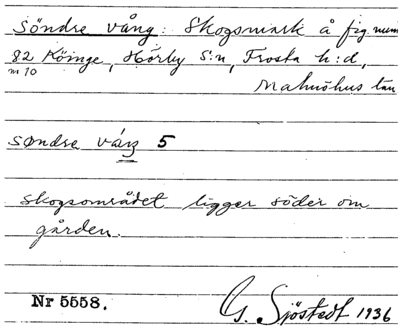 Söndre vång: Skogsmark å fig.num
82 Köinge, Hörby s:n, Frosta h:d,
m 10
Malmöhus län
søndre váng 5
Skogsområdet ligger söder om
gården.
Nr 5558. G. Sjöstedt 1936